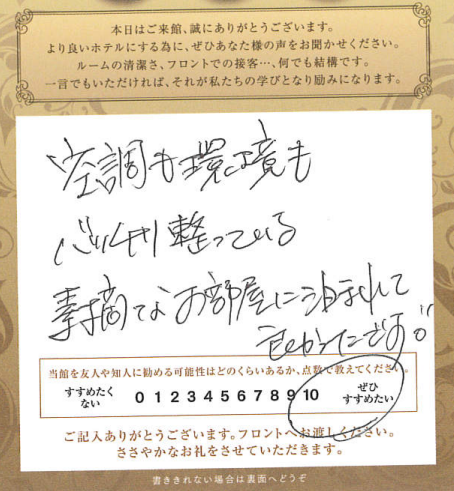 本日はご来館、誠にありがとうございます。
より良いホテルにする為に、ぜひあなた様の声をお聞かせください。
ルームの清潔さ、フロントでの接客…、何でも結構です。
一言でもいただければ、それが私たちの学びとなり励みになります。
空調も環境も
バッチリ整っている
素敵なお部屋に泊まれて
良かったです。
当館を友人や知人に勧める可能性はどのくらいあるか、点数で教えてください。
すすめたくない 0 1 2 3 4 5 6 7 8 9 10 ぜひすすめたい
ご記入ありがとうございます。フロントへお渡しください。
ささやかなお礼をさせていただきます。
書ききれない場合は裏面へどうぞ